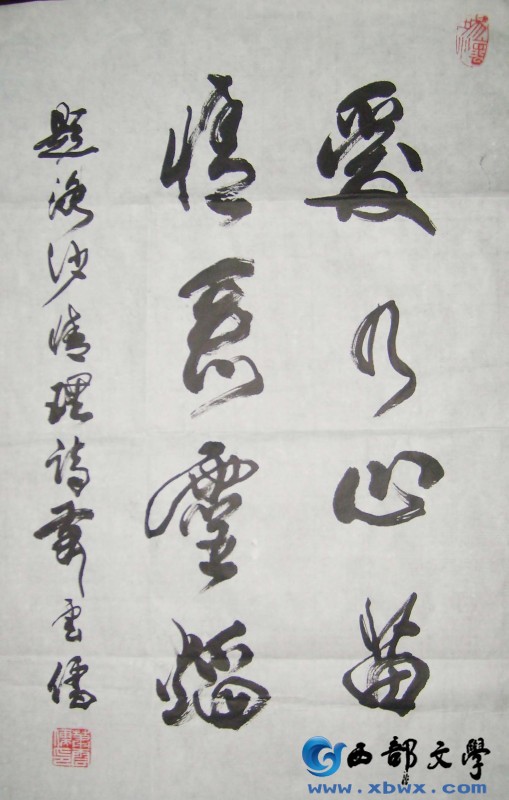 愛乃心苗
情為靈焰
題洛沙情理詩 雲儒
西部文學
www.xbwx.com